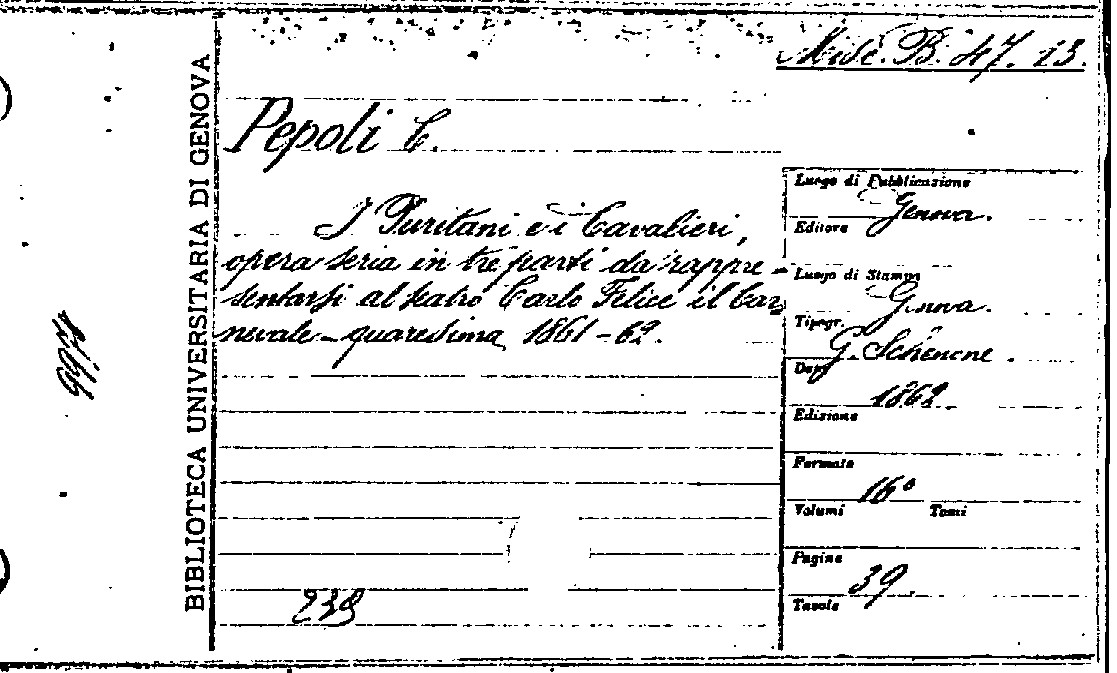 Misc. B. 47. 13.
BIBLIOTECA UNIVERSITARIA DI GENOVA
Pepoli C.
I Puritani e i Cavalieri,
opera seria in tre parti da rappre-
sentarsi al teatro Carlo Felice il Car
nevale-quaresima 1861-62.
239
Luogo di Pubblicazione
Genova.
Editore
Luogo di Stampa
Genova.
Tipogr.
G. Schenone.
Data
1862
Edizione
Formato
16°
Volumi Tomi
Pagine
39.
Tavole